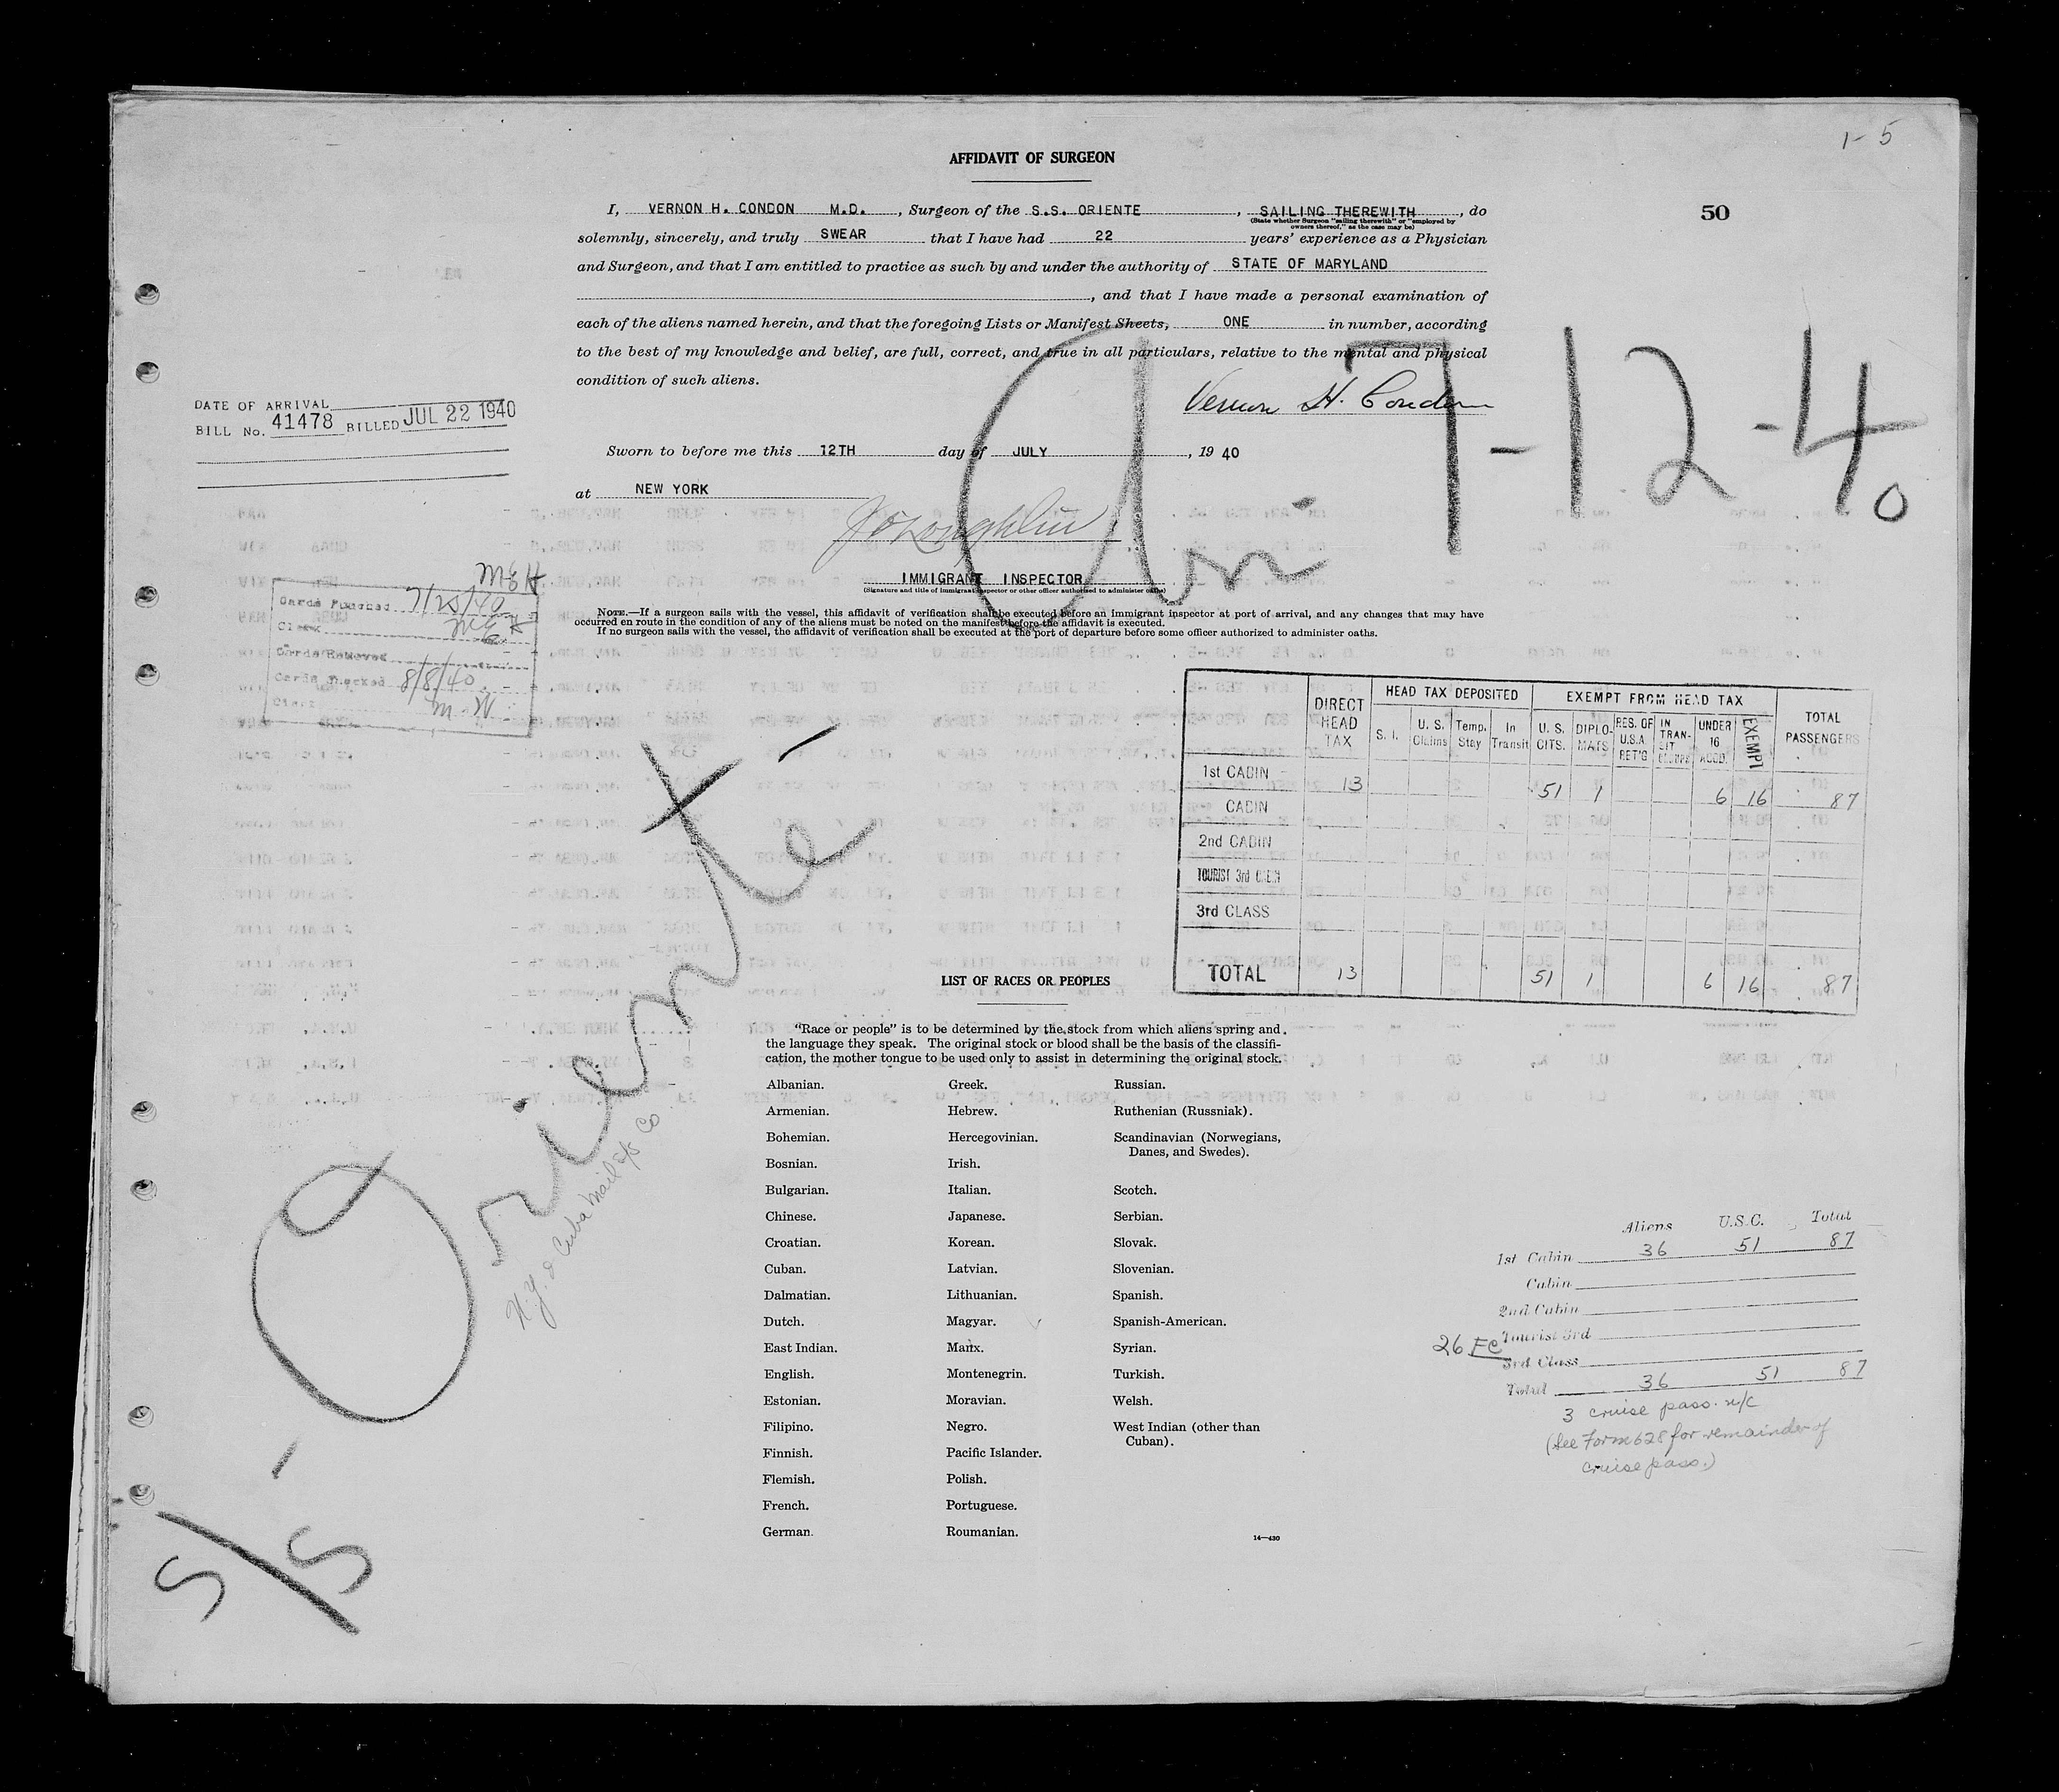 1-5
AFFIDAVIT OF SURGEON
50
I, VERNON H. CONDON M.D. , Surgeon of the S.S. ORIENTE , SAILING THEREWITH , do
(State whether Surgeon "sailing therewith" or "employed by
owners thereof," as the case may be)
solemnly, sincerely, and truly SWEAR that I have had 22 years' experience as a Physician
and Surgeon, and that I am entitled to practice as such by and under the authority of STATE OF MARYLAND
, and that I have made a personal examination of
each of the aliens named herein, and that the foregoing Lists or Manifest Sheets, ONE in number, according
to the best of my knowledge and belief, are full, correct, and true in all particulars, relative to the mental and physical
condition of such aliens.
Vernon H. Condon
Arr. 7-12-40
DATE OF ARRIVAL
BILL No. 41478 BILLED JUL 22 1940
Sworn to before me this 12TH day of JULY , 19 40
at NEW YORK
IMMIGRANT INSPECTOR
(Signature and title of immigrant inspector or other officer authorized to administer oaths)
NOTE.—If a surgeon sails with the vessel, this affidavit of verification shall be executed before an immigrant inspector at port of arrival, and any changes that may have
occurred en route in the condition of any of the aliens must be noted on the manifest before the affidavit is executed.
If no surgeon sails with the vessel, the affidavit of verification shall be executed at the port of departure before some officer authorized to administer oaths.
MEH
Cards Punched 7/25/40
Clerk MEH
Cards Removed
Cards Checked 8/8/40
Clerk M.W
DIRECT HEAD TAX
HEAD TAX DEPOSITED
EXEMPT FROM HEAD TAX
TOTAL PASSENGERS
S. I. U. S. Claims Temp. Stay In Transit U. S. CITS. DIPLO- MATS RES. OF U.S.A. RET'G IN TRAN- SIT UNDER 16 ACCD. EXEMPT
1st CABIN 13 51 1 6 16 87
CABIN
2nd CABIN
TOURIST 3rd CABIN
3rd CLASS
TOTAL 13 51 1 6 16 87
S/S - Oriente -
N.Y. & Cuba Mail S/S Co
LIST OF RACES OR PEOPLES
"Race or people" is to be determined by the stock from which aliens spring and
the language they speak. The original stock or blood shall be the basis of the classifi-
cation, the mother tongue to be used only to assist in determining the original stock.
Albanian. Greek. Russian.
Armenian. Hebrew. Ruthenian (Russniak).
Bohemian. Hercegovinian. Scandinavian (Norwegians,
Danes, and Swedes).
Bosnian. Irish.
Bulgarian. Italian. Scotch.
Chinese. Japanese. Serbian.
Croatian. Korean. Slovak.
Cuban. Latvian. Slovenian.
Dalmatian. Lithuanian. Spanish.
Dutch. Magyar. Spanish-American.
East Indian. Manx. Syrian.
English. Montenegrin. Turkish.
Estonian. Moravian. Welsh.
Filipino. Negro. West Indian (other than
Cuban).
Finnish. Pacific Islander.
Flemish. Polish.
French. Portuguese.
German. Roumanian.
14—430
Aliens U.S.C. Total
1st Cabin 36 51 87
Cabin
2nd Cabin
Tourist 3rd
26 FC
3rd Class
Total 36 51 87
3 cruise pass. n/c
(See Form 628 for remainder of
cruise pass.)